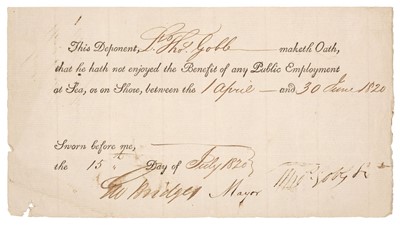 This Deponent, Lt. Thos. Gobb maketh Oath,
that he hath not enjoyed the Benefit of any Public Employment
at Sea, or on Shore, between the 1 April and 30 June 1820
Sworn before me,
the 15 Day of July 1820
Geo Bridges Mayor Thos.